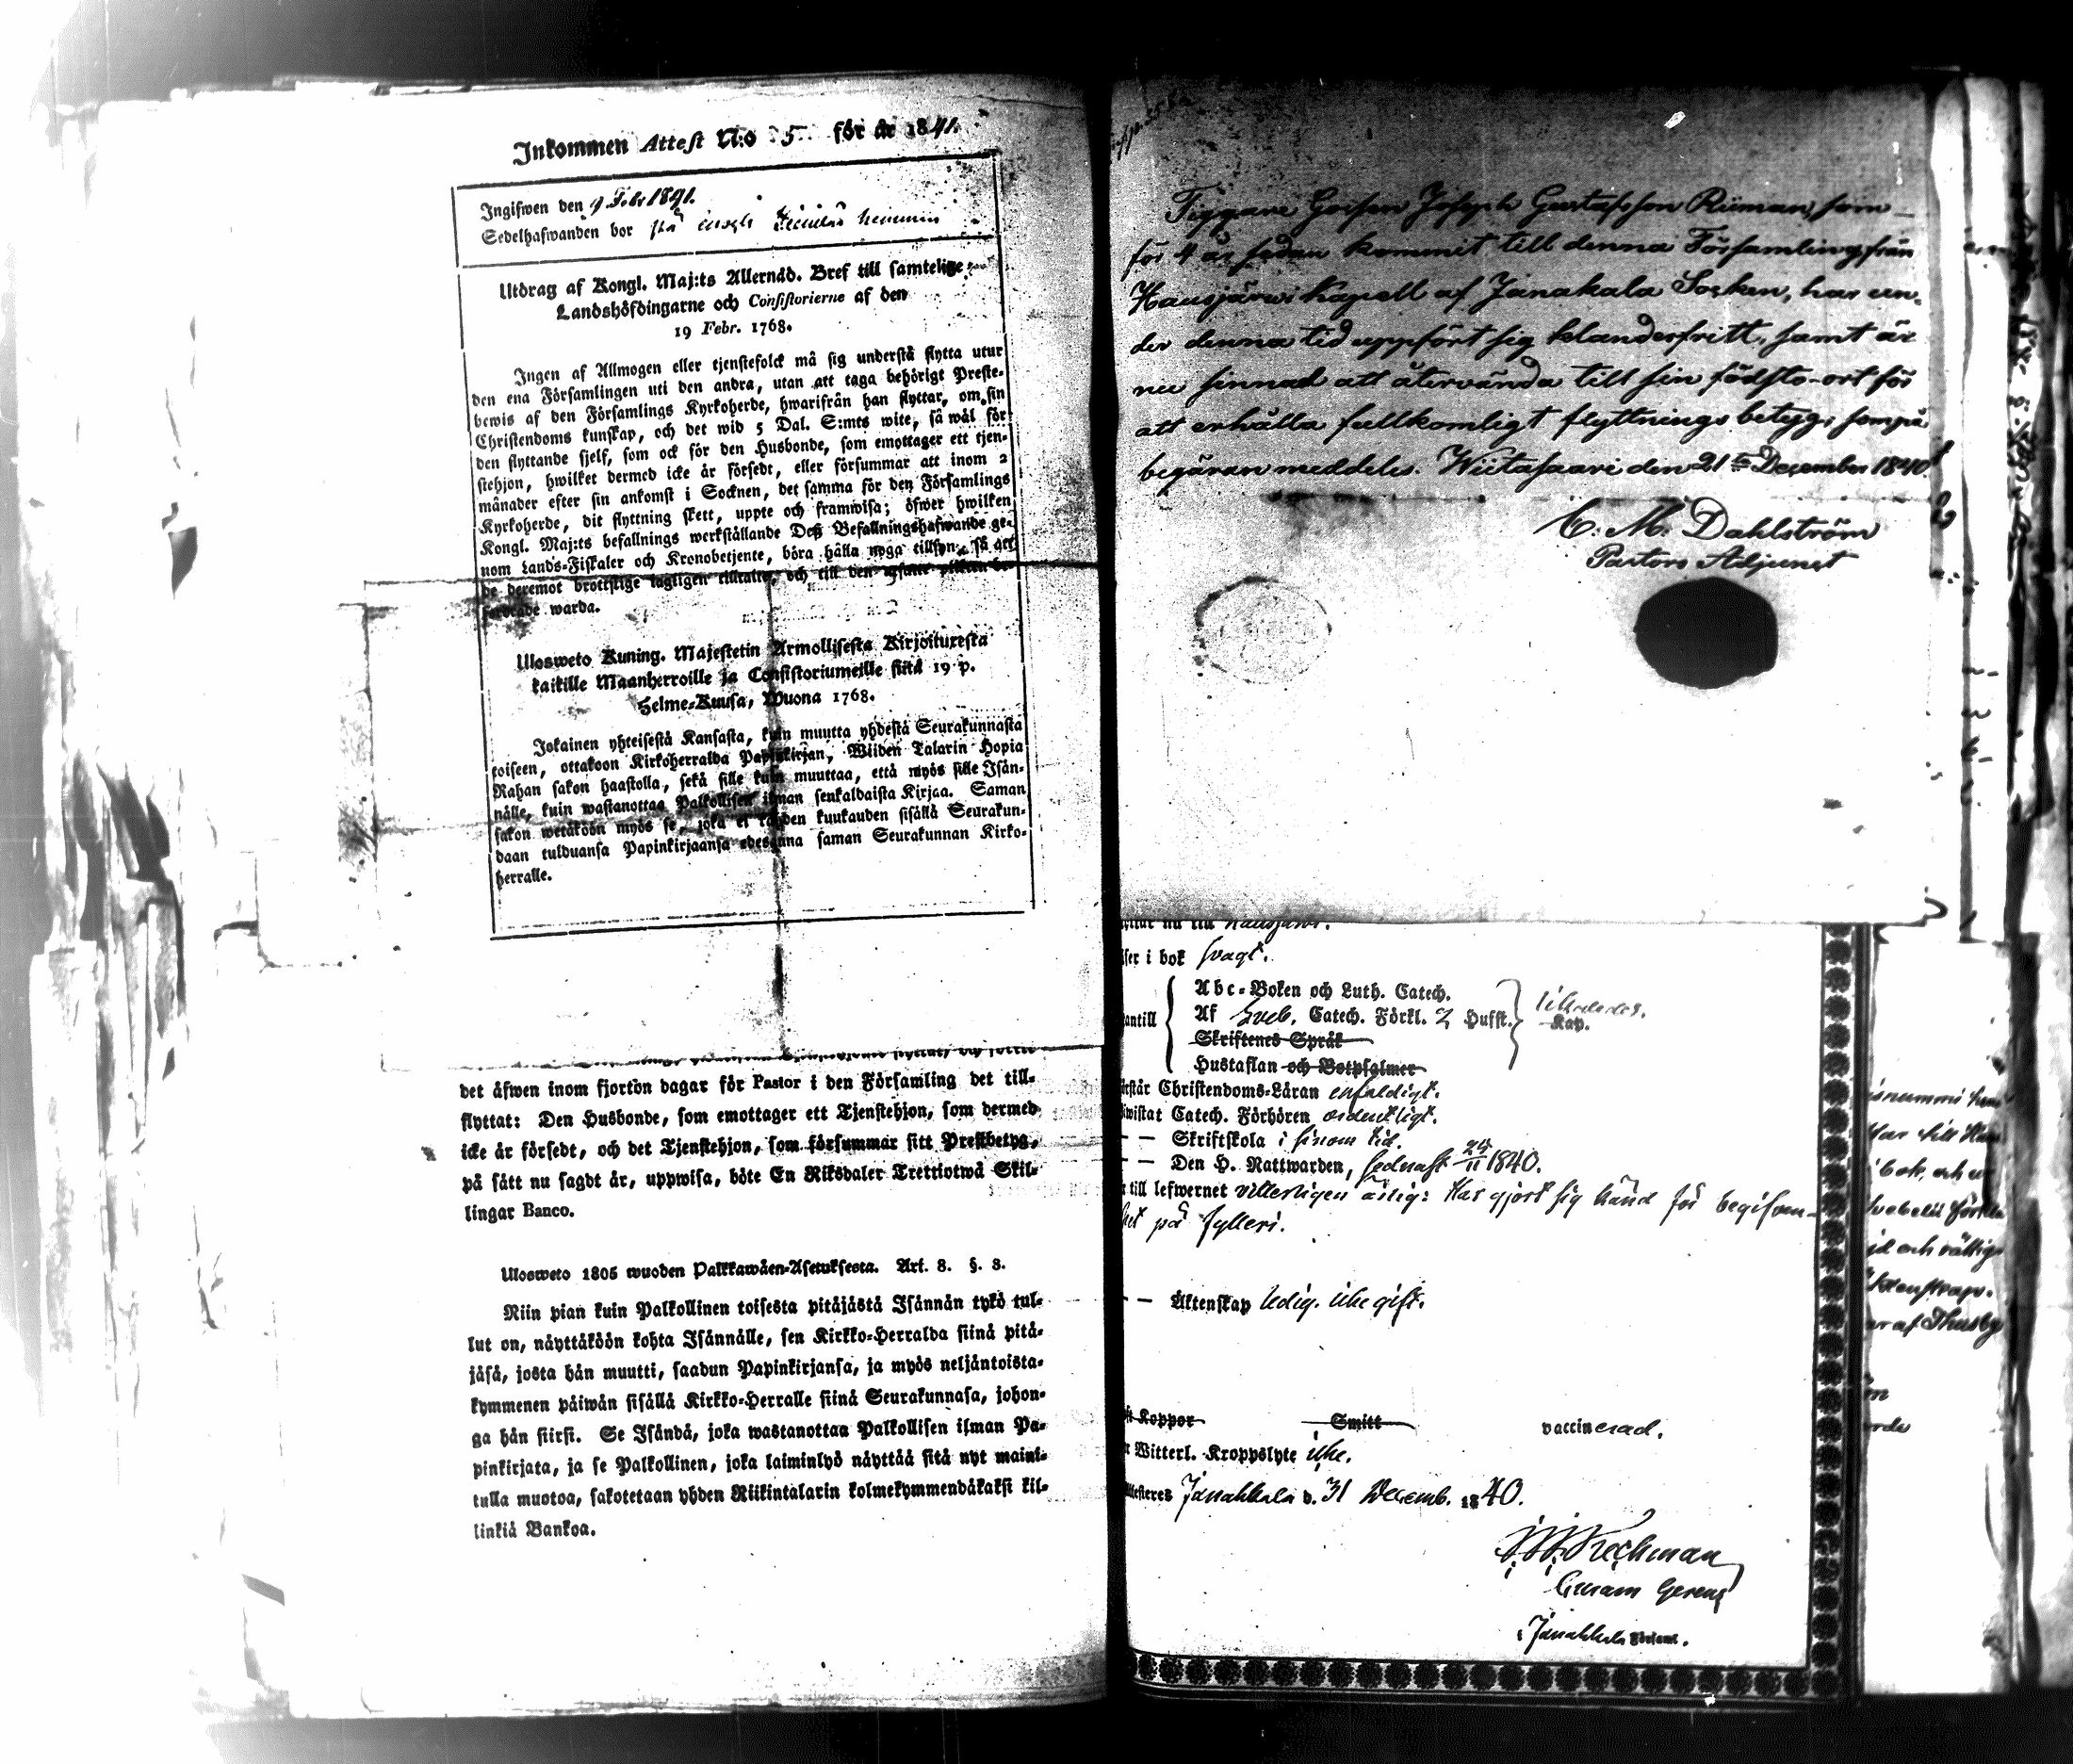 Inkommen Attest N:o 5 för år 1841.
Ingifwen den 9 Febr 1841.
Sedelhafwanden bor på
Utdrag af Kongl. Maj:ts Allernåd. Bref till samtelige
Landshöfdingarne och Consistorierne af den
19 Febr. 1768.
Ingen af Allmogen eller tjenstefolck må sig understå flytta utur
den ena Församlingen uti den andra, utan att taga behörigt Preste-
bewis af den Församlings Kyrkoherde, hwarifrån han flyttar, om sin
Christendoms kunskap, och det wid 5 Dal. S:mts wite, så wäl för
den flyttande sjelf, som ock för den Husbonde, som emottager ett tjen-
stehjon, hwilket dermed icke är försedt, eller försummar att inom 2
månader efter sin ankomst i Socknen, det samma för den Församlings
Kyrkoherde, dit flyttning skett, uppte och framwisa; öfwer hwilken
Kongl. Maj:ts befallnings werkställande Deß Befallningshafwande ge-
nom Lands-Fiskaler och Kronobetjente, böra hålla noga tillsyn, så att
de deremot brottslige lagligen tilltalte, och till den
warda.
Ulosweto Kuning. Majestetin Armollisesta Kirjoituxesta
kaikille Maanherroille ja Consistoriumeille siitä 19 p.
Helme-Kuusa, Wuona 1768.
Jokainen yhteisestä Kansasta, kuin muutta yhdestä Seurakunnasta
toiseen, ottakoon Kirkoherralda Papinkirjan, Wiiden Talarin Hopia
Rahan sakon haastolla, sekä sille kuin muuttaa, että myös sille Isän-
nälle, kuin wastanottaa Palkollisen ilman senkaldaista Kirjaa. Saman
sakon wetäköön myös se, joka ei kahden kuukauden sisällä Seurakun-
daan tulduansa Papinkirjaansa edesanna saman Seurakunnan Kirko-
herralle.
det äfwen inom fjorton dagar för Pastor i den Församling det till-
flyttat: Den Husbonde, som emottager ett Tjenstehjon, som dermed
icke är försedt, och det Tjenstehjon, som försummar sitt Prestbetyg,
på sätt nu sagdt är, uppwisa, böte En Riksdaler Trettiotwå Skil-
lingar Banco.
Ulosweto 1805 wuoden Palkkawäen-Asetuksesta. Art. 8. §. 3.
Niin pian kuin Palkollinen toisesta pitäjästä Isännän tykö tul-
lut on, näyttäköön kohta Isännälle, sen Kirkko-Herralda siinä pitä-
jäsä, josta hän muutti, saadun Papinkirjansa, ja myös neljäntoista-
kymmenen päiwän sisällä Kirkko-Herralle siinä Seurakunnasa, johon-
ga hän siirsi. Se Isändä, joka wastanottaa Palkollisen ilman Pa-
pinkirjata, ja se Palkollinen, joka laiminlyö näyttää sitä nyt maini-
tulla muotoa, sakotetaan yhden Riikintalarin kolmekymmendäkaksi kil-
linkiä Bankoa.
Tiggare Gossen Joseph Gustafsson Riiman, som
för 4 år sedan kommit till denna Församling från
Hausjärwi Kapell af Janakala Socken, har un-
der denna tid uppfört sig klanderfritt, samt är
nu sinnad att återvända till sin födsto-ort för
att erhålla fullkomligt flyttnings betyg; som på
begäran meddeles. Wiitasaari den 21ste December 1840.
C. M. Dahlström
Pastors Adjunct
nu till Hausjärvi.
i bok svagt.
Abc-Boken och Luth. Catech.
antill Af Sveb. Catech. Förkl. 2 Hufst. Kap.
Skriftenes Språk
Hustaflan och Botpsalmer
Christendoms-Läran enfaldigt.
Catech. Förhören ordentligt.
— — Skriftskola i sinom tid.
— — Den H. Nattwarden, sednast 24/11 1840.
till lefwernet ärlig: Har gjort sig känd för begifven-
het på fylleri.
— — Äktenskap ledig. icke gift.
Koppor Smitt vaccinerad.
Witterl. Kroppslyte icke.
Janakkala d. 31 Decemb. 1840.
Curam Gerens
i Janakkala Församl.
till
i bok, och
och
af Thusby